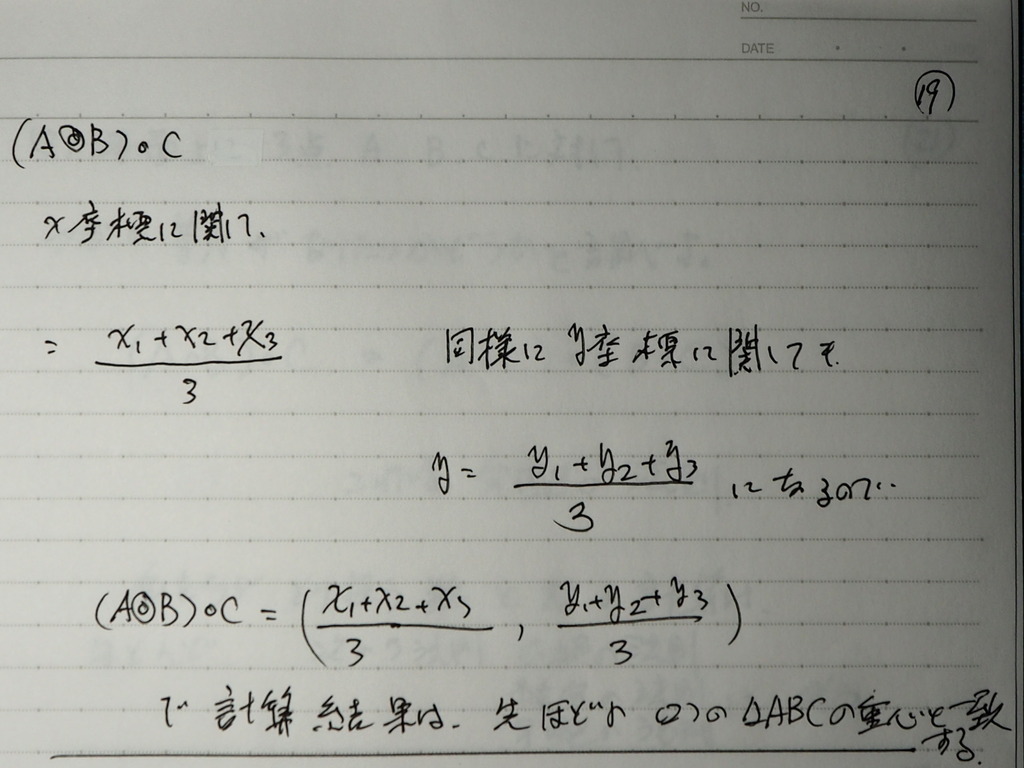 NO.
DATE
⑲
(A◎B)∘C
x座標に関して、
= (x₁+x₂+x₃)/3 同様に y座標に関しても
y = (y₁+y₂+y₃)/3 になるので…
(A◎B)∘C = ((x₁+x₂+x₃)/3 , (y₁+y₂+y₃)/3)
で 計算結果は、先ほどの (2)の △ABCの重心と一致
する。